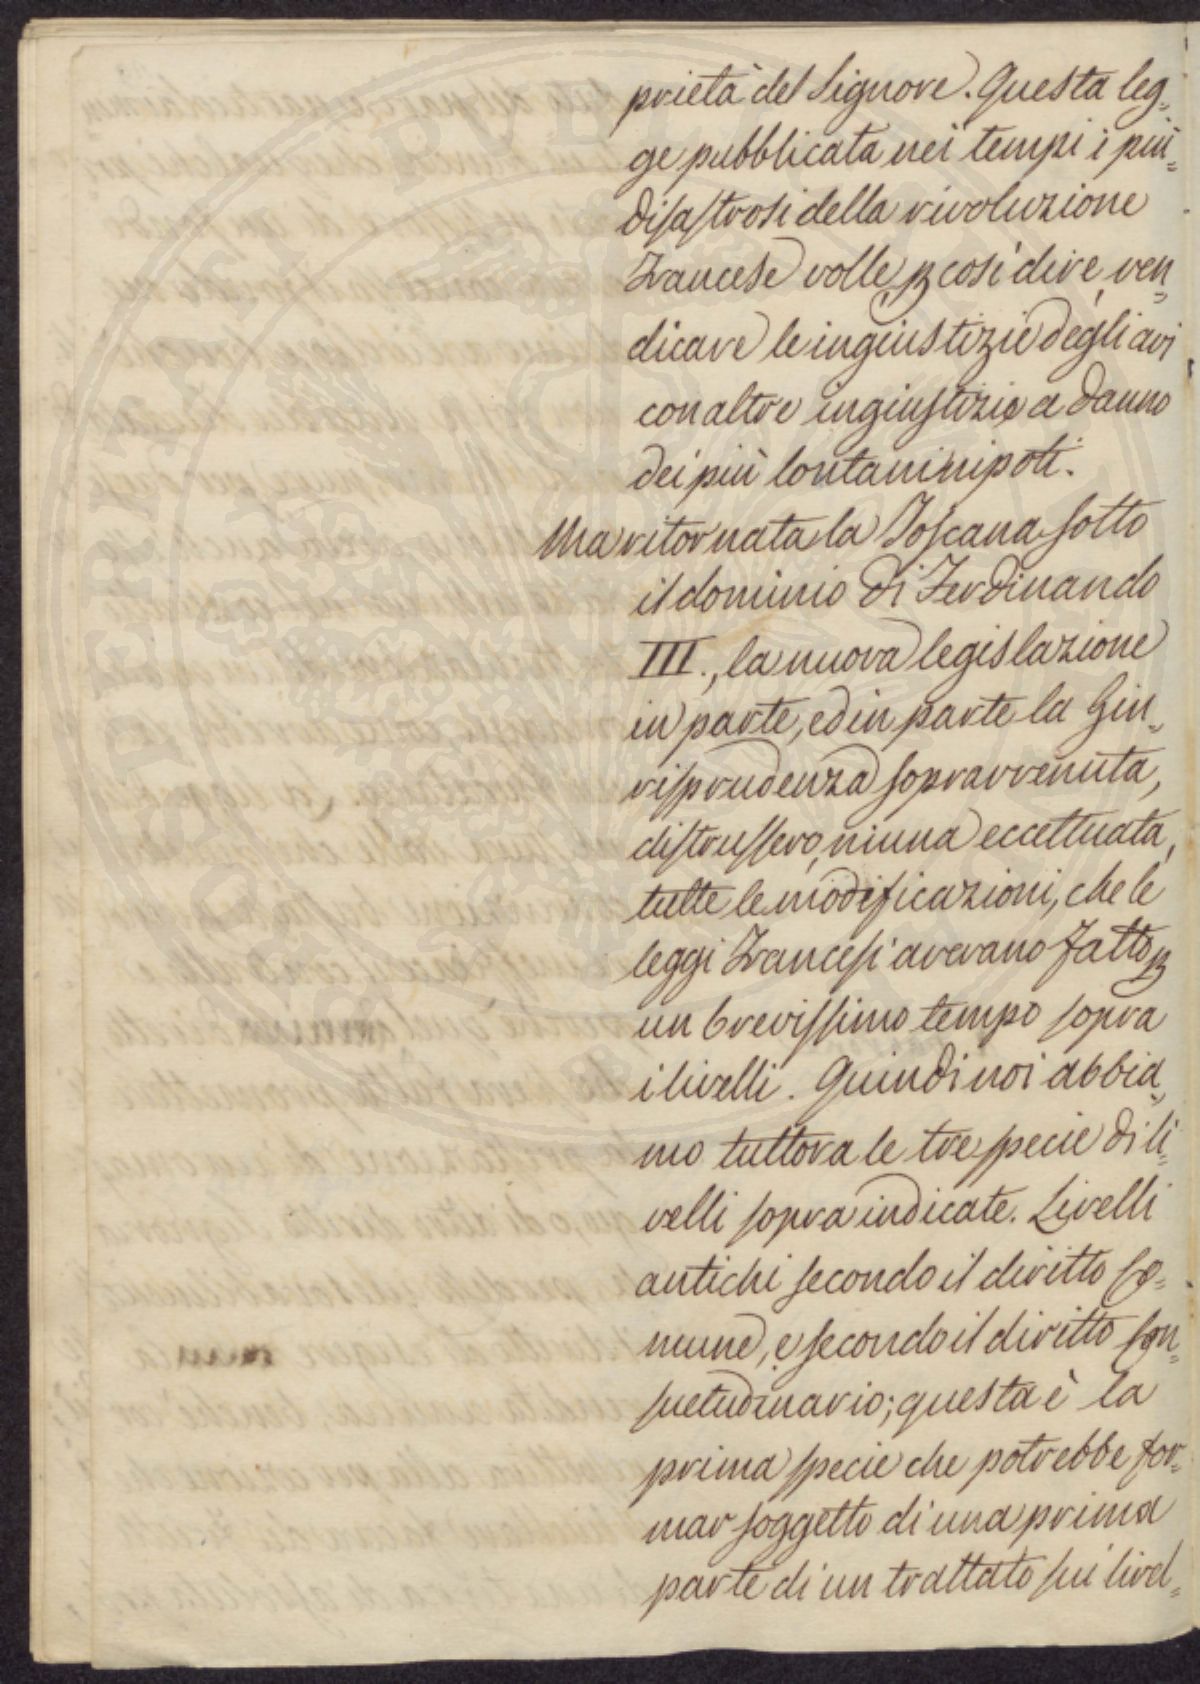 prietà del Signore. Questa leg=
ge pubblicata nei tempi i più=
disastrosi della rivoluzione
Francese volle, p così dire, ven=
dicare le ingiustizie degli avi
con altre ingiustizie a danno
dei più lontani nipoti.
Ma ritornata la Toscana sotto
il dominio di Ferdinando
III., la nuova legislazione
in parte, ed in parte la Giu=
risprudenza sopravvenuta,
distrussero, niuna eccettuata,
tutte le modificazioni, che le
leggi Francesi avevano fatto p
un brevissimo tempo sopra
i livelli. Quindi noi abbia=
mo tuttora le tre specie di li=
velli sopra indicate. Livelli
antichi secondo il diritto Co=
mune, e secondo il diritto Con=
suetudinario; questa è la
prima specie che potrebbe for=
mar soggetto di una prima
parte di un trattato sui livel=